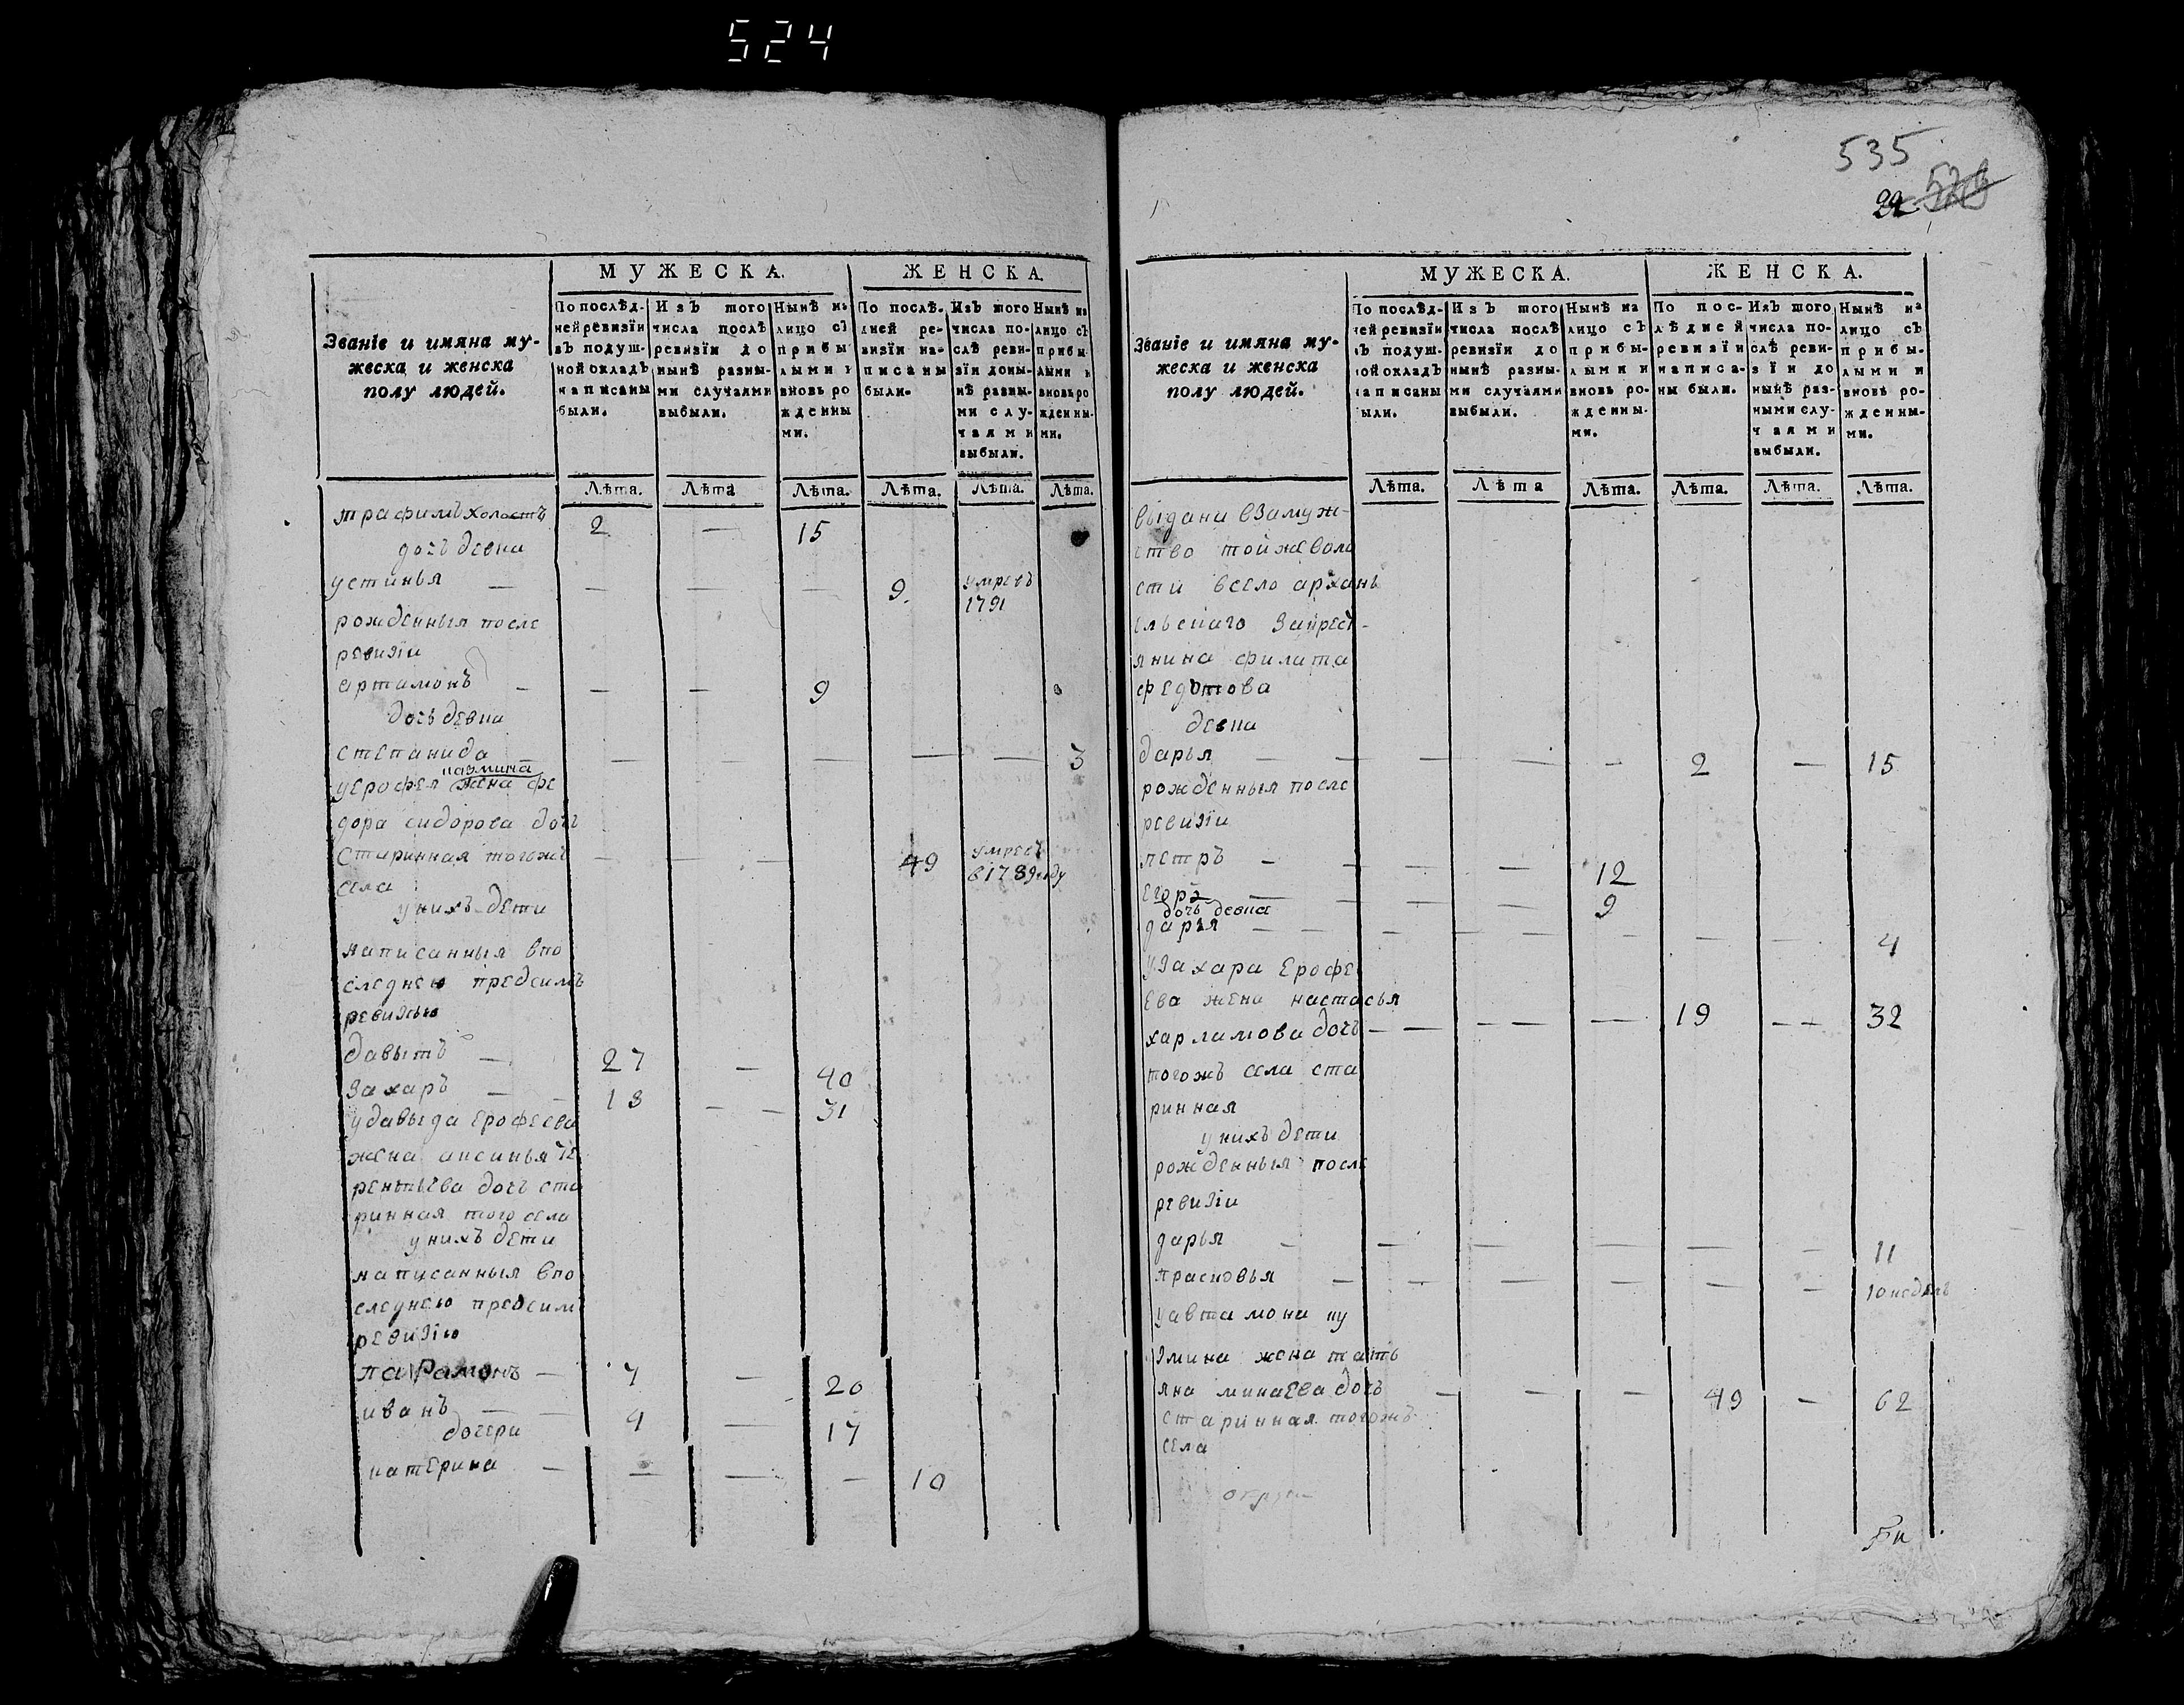 524
МУЖЕСКА. ЖЕНСКА.
Званїе и имяна му-
жеска и женска
полу людей.
По послѣд-
ней ревизїи
въ подуш-
ной окладъ
написаны
были.
Изъ того
числа послѣ
ревизїи до
нынѣ разны-
ми случаями
выбыли.
Нынѣ на
лицо съ
прибы
лыми и
вновь ро
жденны
ми.
По послѣ-
дней ре-
визїи на-
писаны
были.
Изъ того
числа по-
слѣ реви-
зїи доны-
нѣ разны-
ми слу-
чаями
выбыли.
Нынѣ на
лицо съ
прибы-
лыми и
вновь ро
жденны-
ми.
Лѣта. Лѣта Лѣта. Лѣта. Лѣта. Лѣта.
трафимъ холостъ 2 — 15
дочь девка
устинья — — — — 9. умретъ
1791
рожденныя после
ревизїи
артамонъ — — — 9
дочь девка
степанида — — — — — — 3
уерофея жена фе
дора сидорова дочь
старинная тогожъ — — — 49 умре
в1789году
села
унихъ дети
написанныя впо
следнею предсимъ
ревизью
давытъ — 27 — 40
Захаръ — — 18 — — 31
удавыда ерофеева
жена аксинья те
рентьева дочь ста
ринная того села
унихъ дети
написанныя впо
следнею предсим
ревизїю
парамонъ — 7 — 20
иванъ — — 4 — 17
дочери
катерина — — — — 10
535
22
МУЖЕСКА. ЖЕНСКА.
Званїе и имяна му-
жеска и женска
полу людей.
По послѣд-
ней ревизїи
въ подуш-
ной окладъ
написаны
были.
Изъ того
числа послѣ
ревизїи до
нынѣ разны-
ми случаями
выбыли.
Нынѣ на
лицо съ
прибы-
лыми и
вновь ро-
жденны-
ми.
По пос-
лѣдней
ревизїи
написа-
ны были.
Изъ того
числа по-
слѣ реви-
зїи до
нынѣ раз-
ными слу-
чаями
выбыли.
Нынѣ на
лицо съ
прибы-
лыми и
вновь ро-
жденны-
ми.
Лѣта. Лѣта Лѣта. Лѣта. Лѣта. Лѣта.
выдана взамуж-
ство тойжеволо
сти всело архань
ельскаго закрест-
янина филата
федотова
девка
дарья — — — — — 2 — 15
рожденныя после
ревизїи
петръ — — — — 12
Егоръ — — — — 9
дочь девка
дарья — — — — — — — — 4
уЗахара Ерофе
ева жена настасья
харламова дочь — — — — — 19 — — 32
тогожъ села ста
ринная
унихъ дети
рожденныя после
ревизїи
дарья — — — — — — 11
прасковья — — — — — — 10недель
уавтамона ку
змина жена тать
яна минаева дочь — — — 49 — 62
старинная тогожъ
села